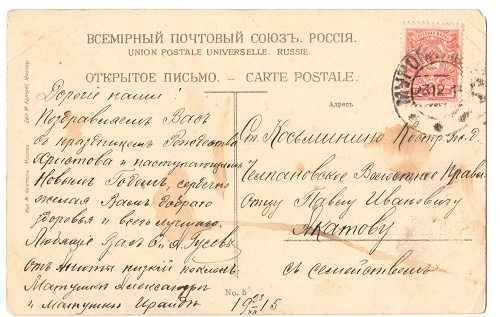 ВСЕМІРНЫЙ ПОЧТОВЫЙ СОЮЗЪ. РОССІЯ.
UNION POSTALE UNIVERSELLE. RUSSIE.
ОТКРЫТОЕ ПИСЬМО. – CARTE POSTALE.
Дорогіе наши!
Поздравляемъ Васъ
съ праздникомъ Рождества
Христова и наступающимъ
Новымъ Годомъ, сердечно
желая Вамъ добраго
здоровья и всего лучшаго.
Любящіе Васъ О. и А. Гусевы
Отъ Анюты низкій поклонъ
Матушкѣ Александрѣ
и матушкѣ Ираидѣ
Адресъ.
Ст. Космынино Костр. ж. д.
Волостное Правл.
Отцу Павлу Ивановичу
Якатову
съ семействомъ
No. 5
19 23/XII 15